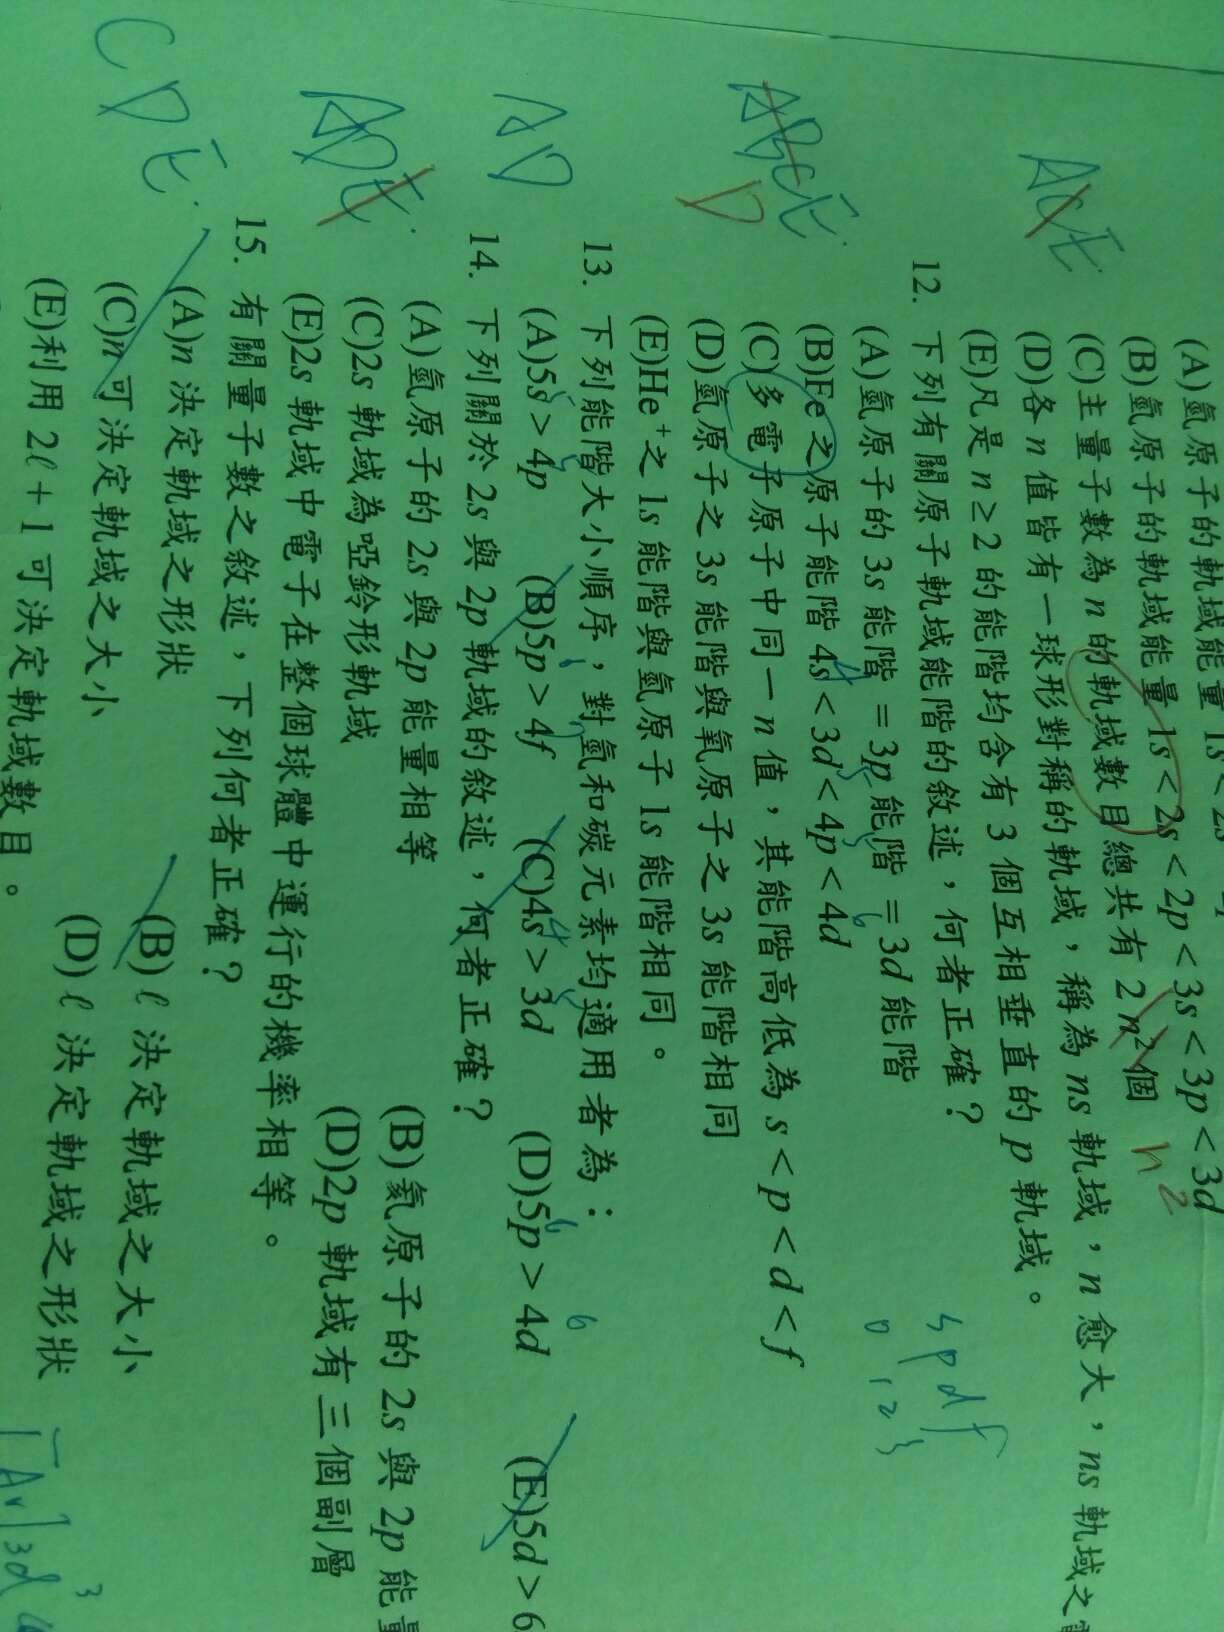 (A)氫原子的軌域能量 1s < 2s
(B)氫原子的軌域能量 1s < 2s < 2p < 3s < 3p < 3d
(C)主量子數為 n 的軌域數目總共有 2n²個 n2
(D)各 n 值皆有一球形對稱的軌域，稱為 ns 軌域，n 愈大，ns 軌域之
(E)凡是 n ≥ 2 的能階均含有 3 個互相垂直的 p 軌域。
ACE
12. 下列有關原子軌域能階的敘述，何者正確？
s p d f
0 1 2 3
(A)氫原子的 3s 能階 = 3p 能階 = 3d 能階
(B)Fe 之原子能階 4s < 3d < 4p < 4d
(C)多電子原子中同一 n 值，其能階高低為 s < p < d < f
(D)氫原子之 3s 能階與氧原子之 3s 能階相同
(E)He⁺之 1s 能階與氫原子 1s 能階相同。
ABCE
D
13. 下列能階大小順序，對氫和碳元素均適用者為：
(A)5s > 4p (B)5p > 4f (C)4s > 3d (D)5p > 4d (E)5d > 6
AD
14. 下列關於 2s 與 2p 軌域的敘述，何者正確？
(A)氫原子的 2s 與 2p 能量相等 (B)氦原子的 2s 與 2p 能量
(C)2s 軌域為啞鈴形軌域 (D)2p 軌域有三個副層
(E)2s 軌域中電子在整個球體中運行的機率相等。
ADE
15. 有關量子數之敘述，下列何者正確？
(A)n 決定軌域之形狀 (B)ℓ 決定軌域之大小
(C)n 可決定軌域之大小 (D)ℓ 決定軌域之形狀
(E)利用 2ℓ + 1 可決定軌域數目。
CDE
[Ar]3d³